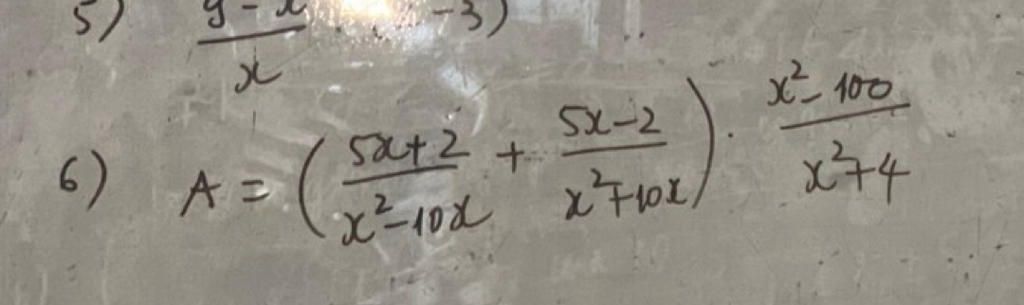 5) (y - x)/x -3)
6) A = ( (5x+2)/(x²-10x) + (5x-2)/(x²+10x) ) . (x²-100)/(x²+4)